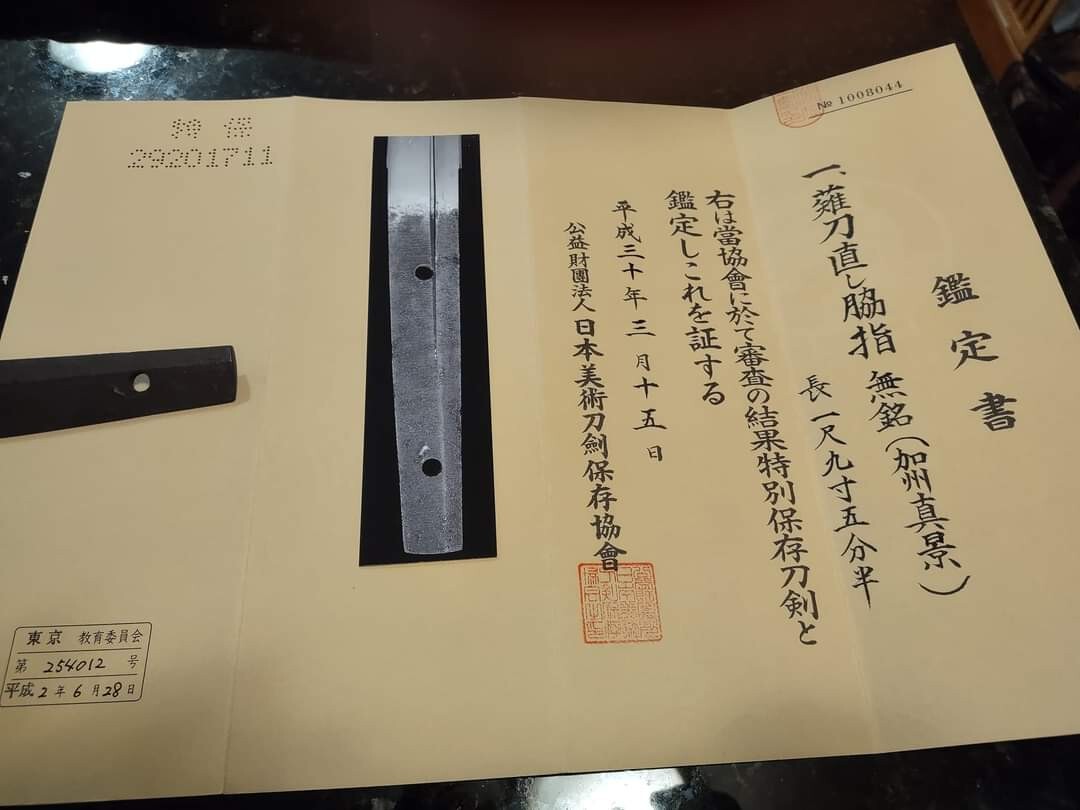 № 1008044
鑑定書
一、薙刀直し脇指 無銘(加州真景)
長 一尺九寸五分半
右は當協會に於て審査の結果特別保存刀剣と
鑑定しこれを証する
平成三十年三月十五日
公益財團法人 日本美術刀劍保存協會
特保
29201711
東京 教育委員会
第 254012 号
平成 2 年 6 月 28 日